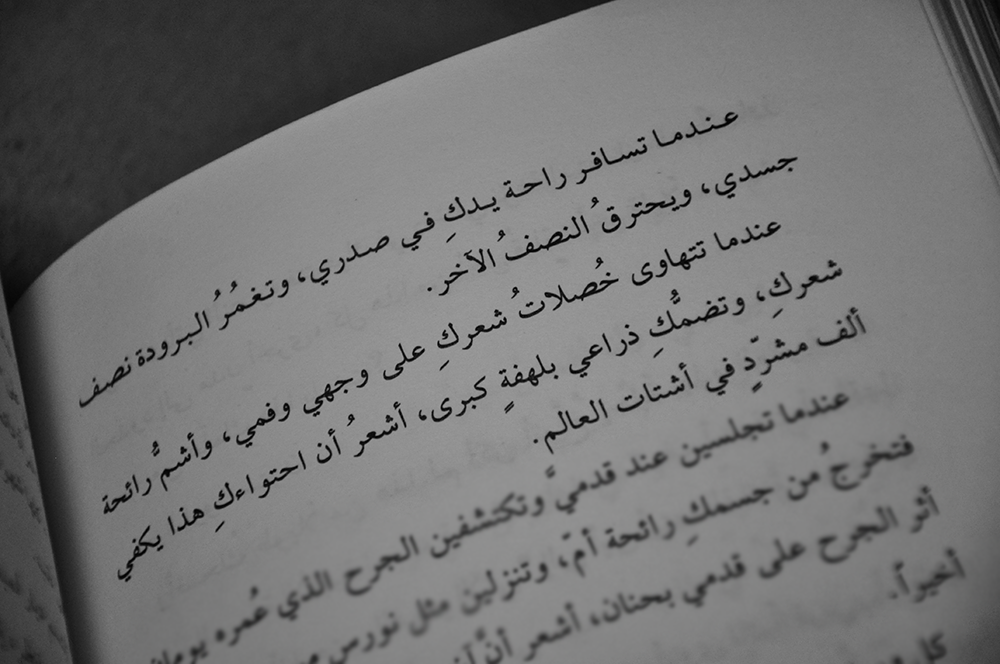 عندما تسافر راحة يدكِ في صدري، وتغمُرُ البرودة نصف
جسدي، ويحترقُ النصفُ الآخر.
عندما تتهاوى خُصلاتُ شعركِ على وجهي وفمي، وأشمُّ رائحة
شعركِ، وتضمُّكِ ذراعي بلهفةٍ كبرى، أشعرُ أن احتواءكِ هذا يكفي
ألف مشرّدٍ في أشتات العالم.
عندما تجلسين عند قدميَّ وتكتشفين الجرح الذي عُمره يومان
فتخرجُ من جسمكِ رائحة أمّ، وتنزلين مثل نورس
أثر الجرح على قدمي بحنان، أشعر أنَّ
أخيراً.
كل